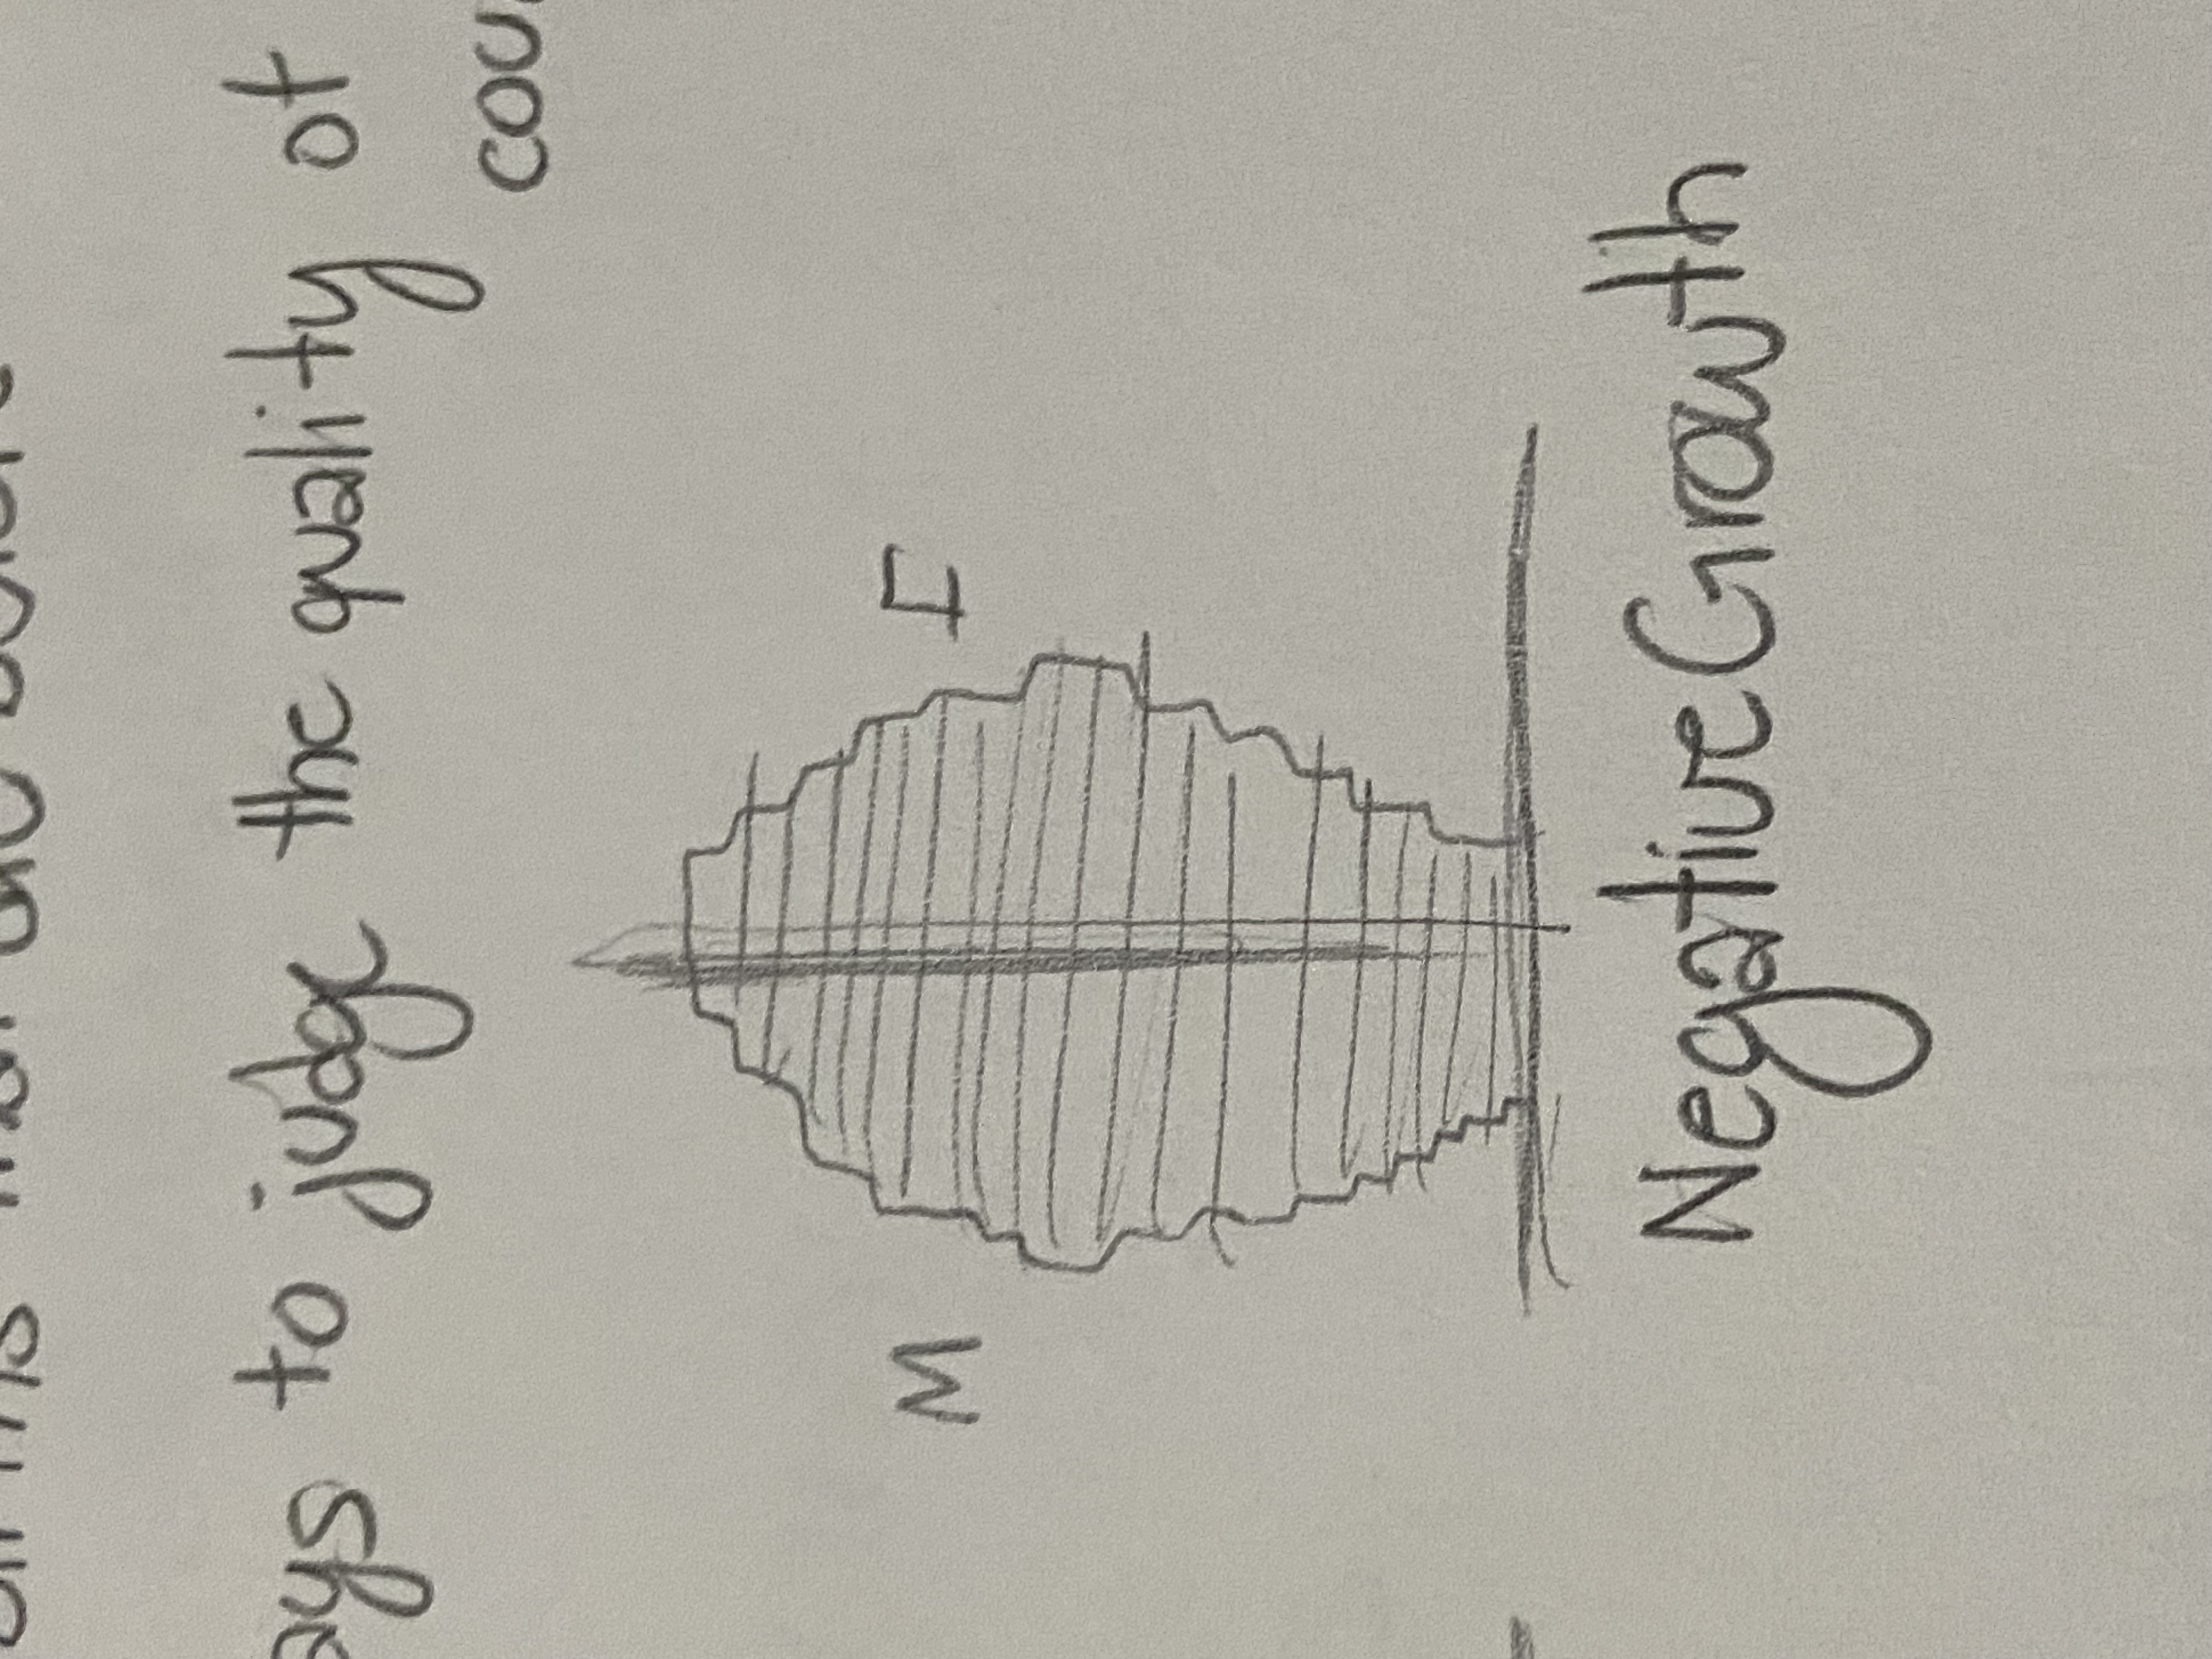 to judge the quality of
cou
M F
Negative Growth